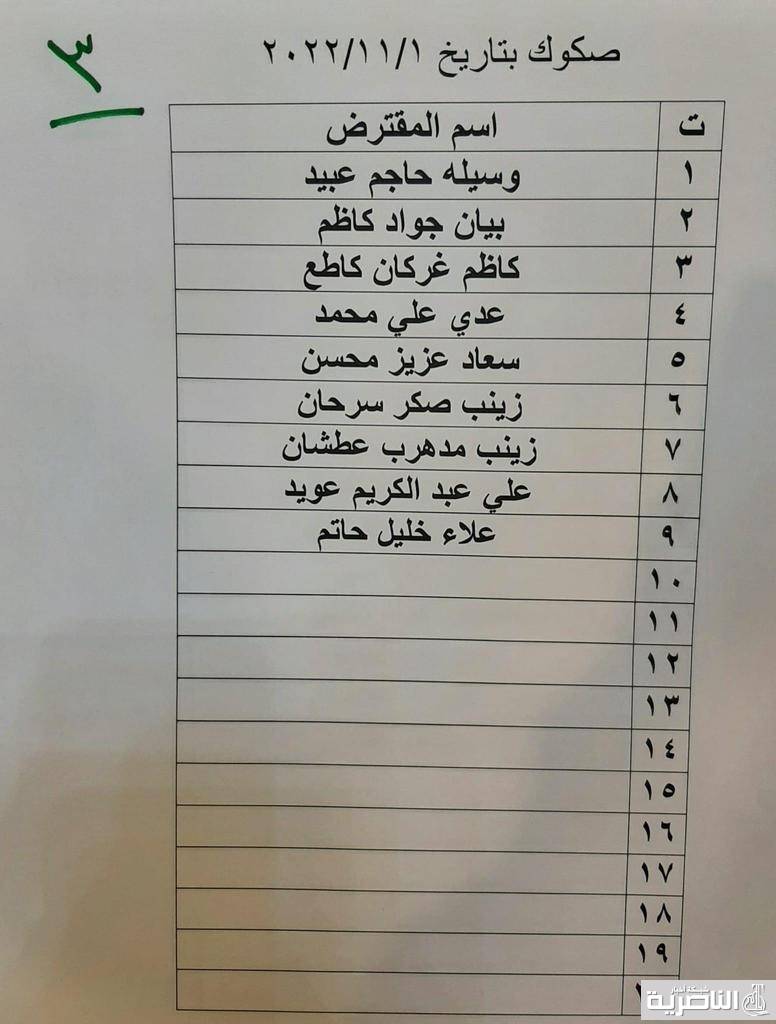 ٣
صكوك بتاريخ ٢٠٢٢/١١/١
ت اسم المقترض
١ وسيله حاجم عبيد
٢ بيان جواد كاظم
٣ كاظم غركان كاطع
٤ عدي علي محمد
٥ سعاد عزيز محسن
٦ زينب صكر سرحان
٧ زينب مدهرب عطشان
٨ علي عبد الكريم عويد
٩ علاء خليل حاتم
١٠
١١
١٢
١٣
١٤
١٥
١٦
١٧
١٨
١٩
شبكة أخبار
الناصرية